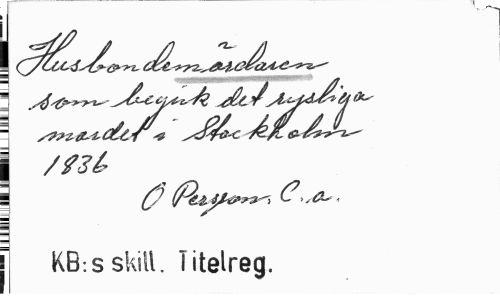 Husbondemördaren
som begick det rysliga
mordet i Stockholm
1836
O Persson, C. a.
KB:s skill. Titelreg.